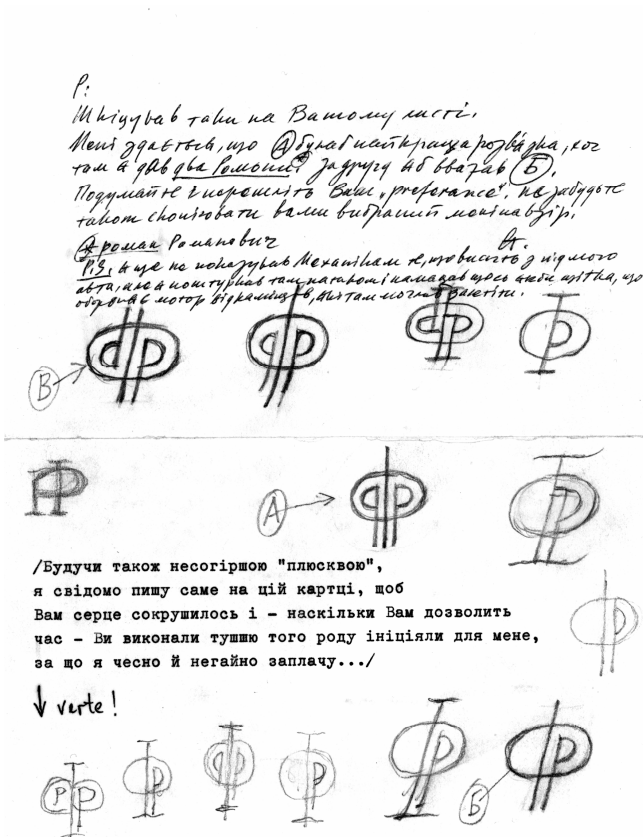 Р:
Шкіцував таки на Вашому листі.
Мені здається, що А була б найкраща розв'язка, хоч
там я дав два Романи* за другу я б вважав Б.
Подумайте і перешліть Ваш „preferance", не забудьте
також скопіювати вами вибраний
* роман Романович
P.S. Я ще не показував Механікам те, що висить з під мого
авта, але я
мотор від каміння, які там могли б залетіти.
В
А
/Будучи також несогіршою "плюсквою",
я свідомо пишу саме на цій картці, щоб
Вам серце сокрушилось і – наскільки Вам дозволить
час – Ви виконали тушшю того роду ініціяли для мене,
за що я чесно й негайно заплачу.../
↓ verte!
Р
Б